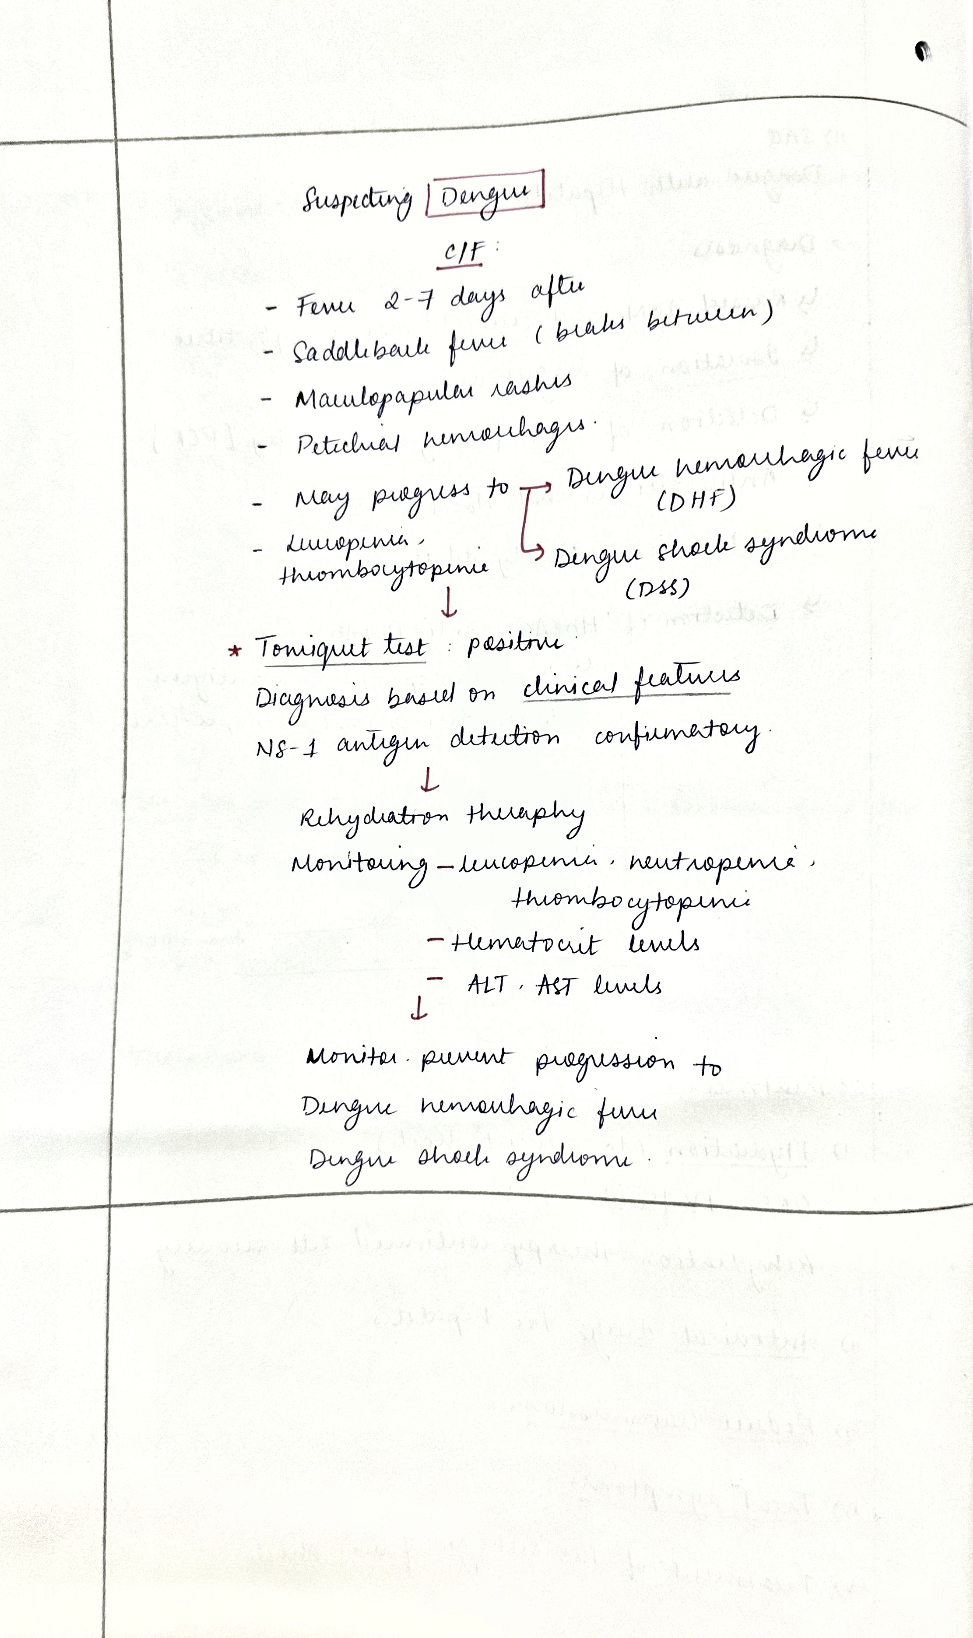 Suspecting Dengue
C/F :
- Fever 2-7 days after
- Saddleback fever (breaks between)
- Maculopapular rashes
- Petechial hemorrhages.
- May progress to → Dengue hemorrhagic fever
(DHF)
→ Dengue shock syndrome
(DSS)
- Leucopenia,
thrombocytopenia
↓
* Torniquet test : positive
Diagnosis based on clinical features
NS-1 antigen detection confirmatory.
↓
Rehydration theraphy
Monitoring - leucopenia, neutropenia,
thrombocytopenia
- Hematocrit levels
- ALT, AST levels
↓
Monitor, prevent progression to
Dengue hemorrhagic fever
Dengue shock syndrome.